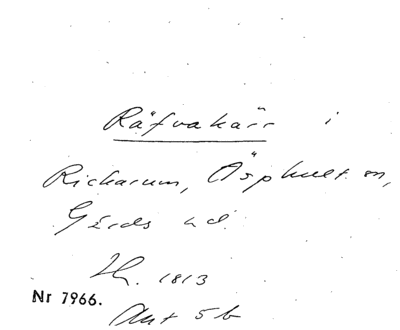 Räfvakärr i
Rickarum, Äsphult sn,
Gärds hd.
1813
Nr 7966.
Akt 5b